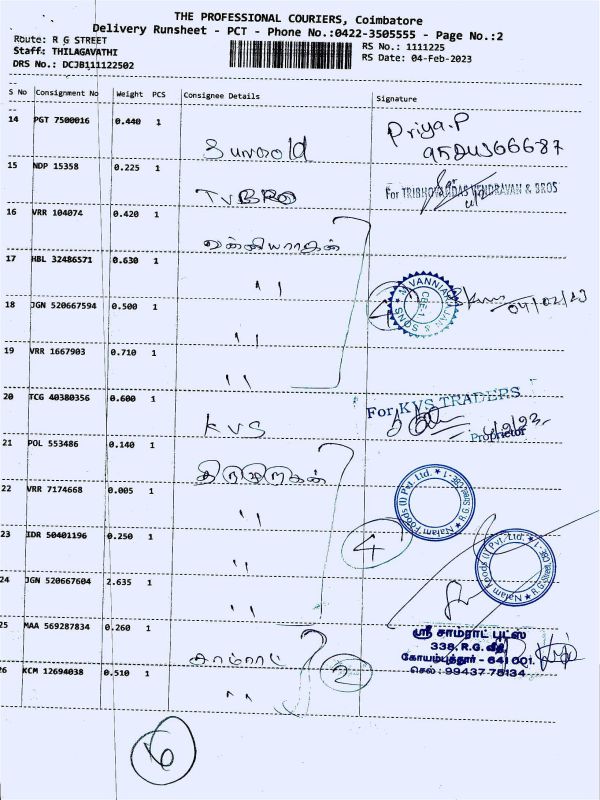 THE PROFESSIONAL COURIERS, Coimbatore
Delivery Runsheet - PCT - Phone No.:0422-3505555 - Page No.:2
Route: R G STREET
RS No.: 1111225
Staff: THILAGAVATHI
RS Date: 04-Feb-2023
DRS No.: DCJB111122502
S No Consignment No Weight PCS Consignee Details Signature
14 PGT 7500016 0.440 1
Priya.P
15 NDP 15358 0.225 1
For TRIBHOVANDAS VENDRAVAN & BROS
16 VRR 104074 0.420 1
வன்னியராஜன்
17 HBL 32486571 0.630 1
" 
4
M VANNIARAJAN & SONS
CBE-1
04/02/23
18 JGN 520667594 0.500 1
"
19 VRR 1667903 0.710 1
"
20 TCG 40380356 0.600 1
KVS
For KVS TRADERS
Proprietor
21 POL 553486 0.140 1
திருமுருகன்
22 VRR 7174668 0.005 1
"
Nalam Foods (I) Pvt. Ltd.
R.G. Street, CBE-1
23 IDR 50401196 0.250 1
"
4
Nalam Foods (I) Pvt. Ltd.
R.G. Street, CBE-1
24 JGN 520667604 2.635 1
"
25 MAA 569287834 0.260 1
சாம்ராட்
2
ஸ்ரீ சாம்ராட் புட்ஸ்
338, R.G. வீதி
கோயம்புத்தூர் - 641 001.
செல் : 99437 78134
26 KCM 12694038 0.510 1
"
6